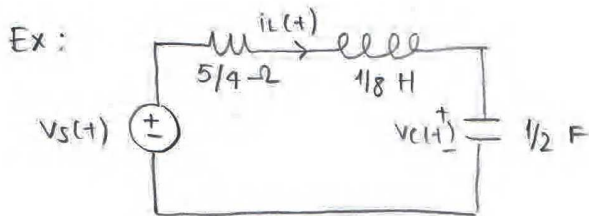 Ex :
iL(t)
5/4 Ω
1/8 H
Vs(t)
+
-
Vc(t)
+
-
1/2 F